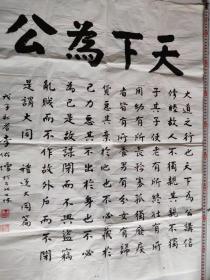 天下為公
大道之行也天下為公講信
修睦故人不獨親其親不獨
子其子使老有所終壯有所
用幼有所長矜寡孤獨廢疾
者皆有所養男有分女有歸
貨惡其棄於地也不必藏於
己力惡其不出於身也不必
為己是故謀閉而不興盜竊
亂賊而不作故外戶而不閉
是謂大同 禮運大同篇
戊子初春李佑增